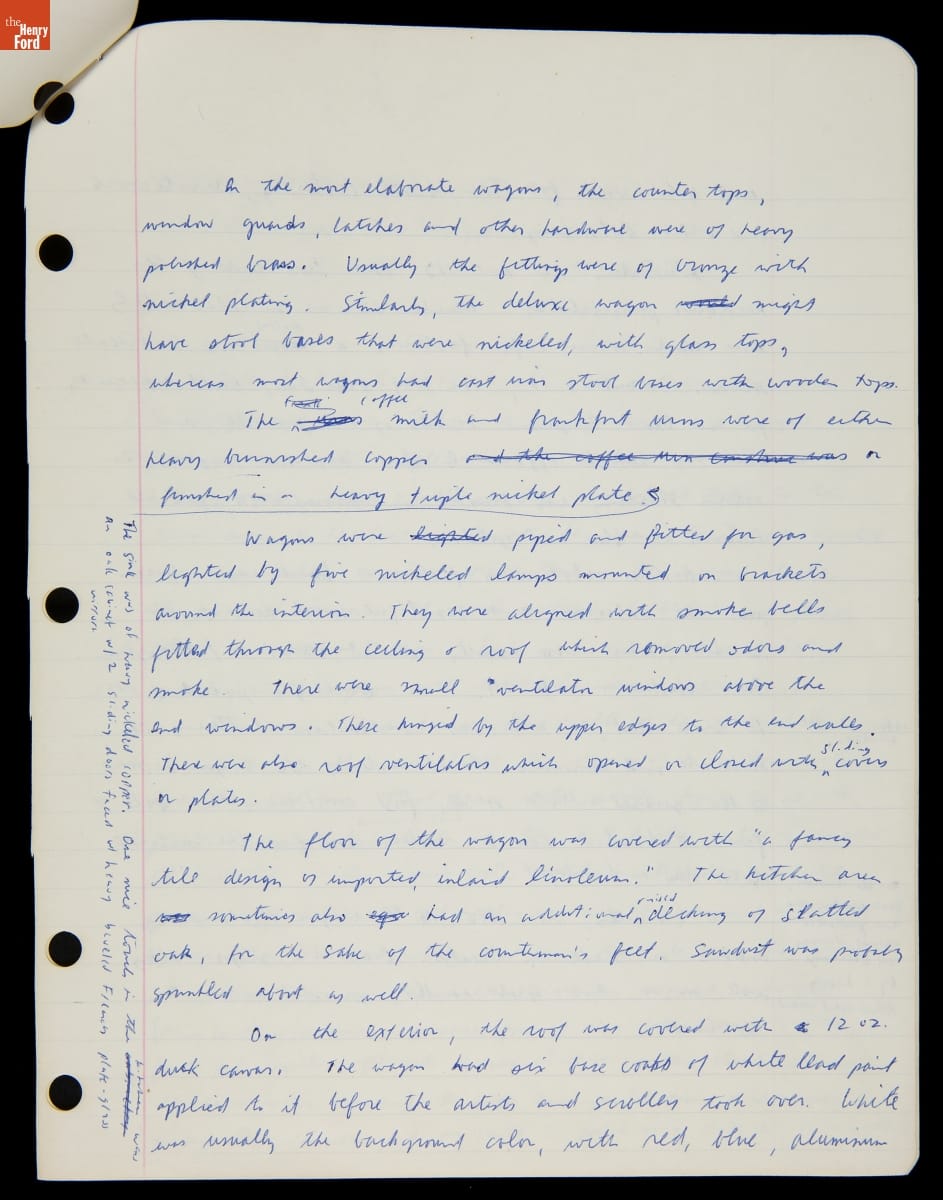 the
Henry
Ford
In the most elaborate wagons, the counter tops,
window guards, latches and other hardware were of heavy
polished brass. Usually the fittings were of bronze with
nickel plating. Similarly, the deluxe wagon would might
have stool bases that were nickeled, with glass tops,
whereas most wagons had cast iron stool bases with wooden tops.
The coffee milk and frankfort urns were of either
heavy burnished copper and the coffee urn was or
finished in a heavy triple nickel plate.
Wagons were lighted piped and fitted for gas,
lighted by five nickeled lamps mounted on brackets
around the interior. They were aligned with smoke bells
fitted through the ceiling & roof which removed odors and
smoke. There were small ventilator windows above the
end windows. These hinged by the upper edges to the end walls.
There were also roof ventilators which opened or closed with sliding covers
or plates.
The floor of the wagon was covered with "a fancy
tile design of imported, inlaid linoleum." The kitchen area
was sometimes also had an additional raised decking of slatted
oak, for the sake of the counterman's feet. Sawdust was probably
sprinkled about as well.
On the exterior, the roof was covered with a 12 oz.
duck canvas. The wagon had six base coats of white lead paint
applied to it before the artists and scrollers took over. White
was usually the background color, with red, blue, aluminum
The sink was of heavy nickeled copper. One nice touch in the kitchen was
an oak cabinet w/ 2 sliding doors faced w/ heavy beveled French plate-glass
mirrors